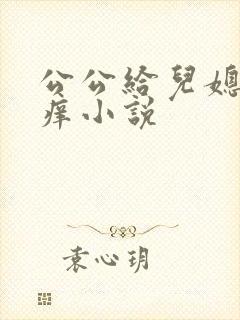 公公給兒媳
痒小說
袁心玥